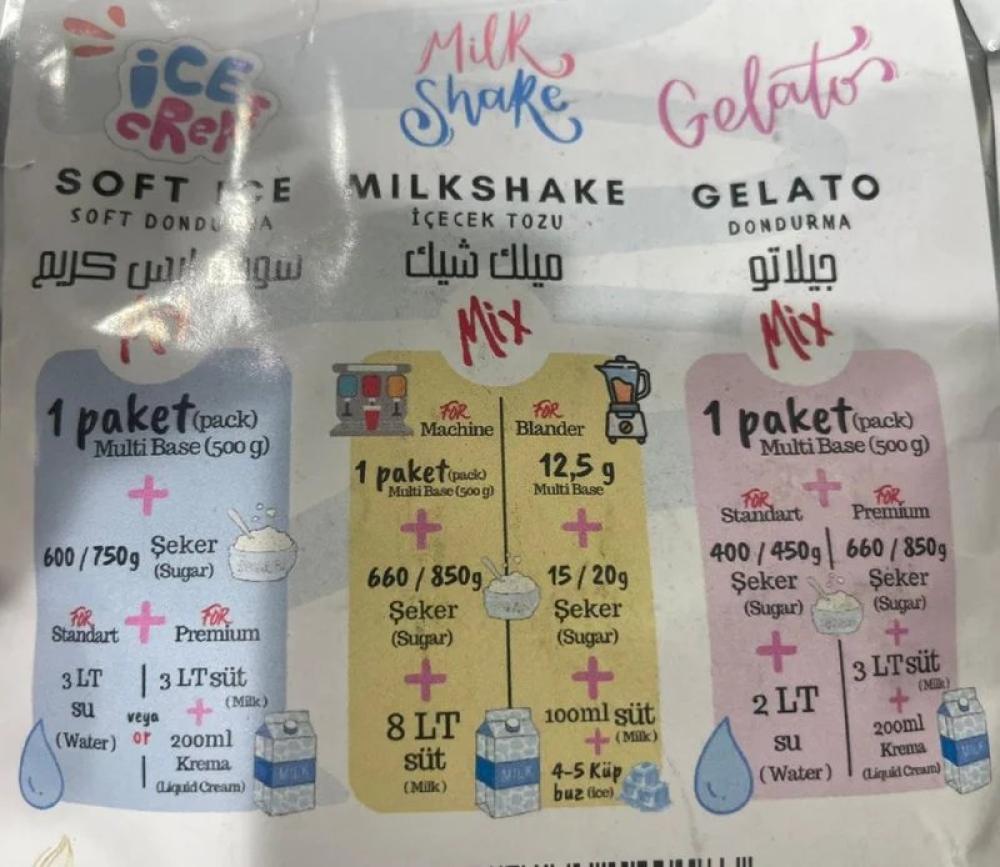 iCE
CREAM
Milk
Shake
Gelato
SOFT ICE
SOFT DONDURMA
سوفت ايس كريم
MILKSHAKE
İÇECEK TOZU
ميلك شيك
GELATO
DONDURMA
جيلاتو
Mix
1 paket (pack)
Multi Base (500 g)
+
600 / 750g Şeker
(Sugar)
+
FOR
Standart
FOR
Premium
3 LT
su
(Water)
veya
or
3 LT süt
(Milk)
+
200ml
Krema
(Liquid Cream)
MILK
Mix
FOR
Machine
1 paket (pack)
Multi Base (500 g)
+
660 / 850g
Şeker
(Sugar)
+
8 LT
süt
(Milk)
MILK
FOR
Blander
12,5 g
Multi Base
+
15 / 20g
Şeker
(Sugar)
+
100ml süt
+ (Milk)
4-5 Küp
buz (ice)
Mix
1 paket (pack)
Multi Base (500 g)
+
FOR
Standart
400 / 450g
Şeker
(Sugar)
+
2 LT
su
(Water)
FOR
Premium
660 / 850g
Şeker
(Sugar)
+
3 LT süt
(Milk)
+
200ml
Krema
(Liquid Cream)
MILK